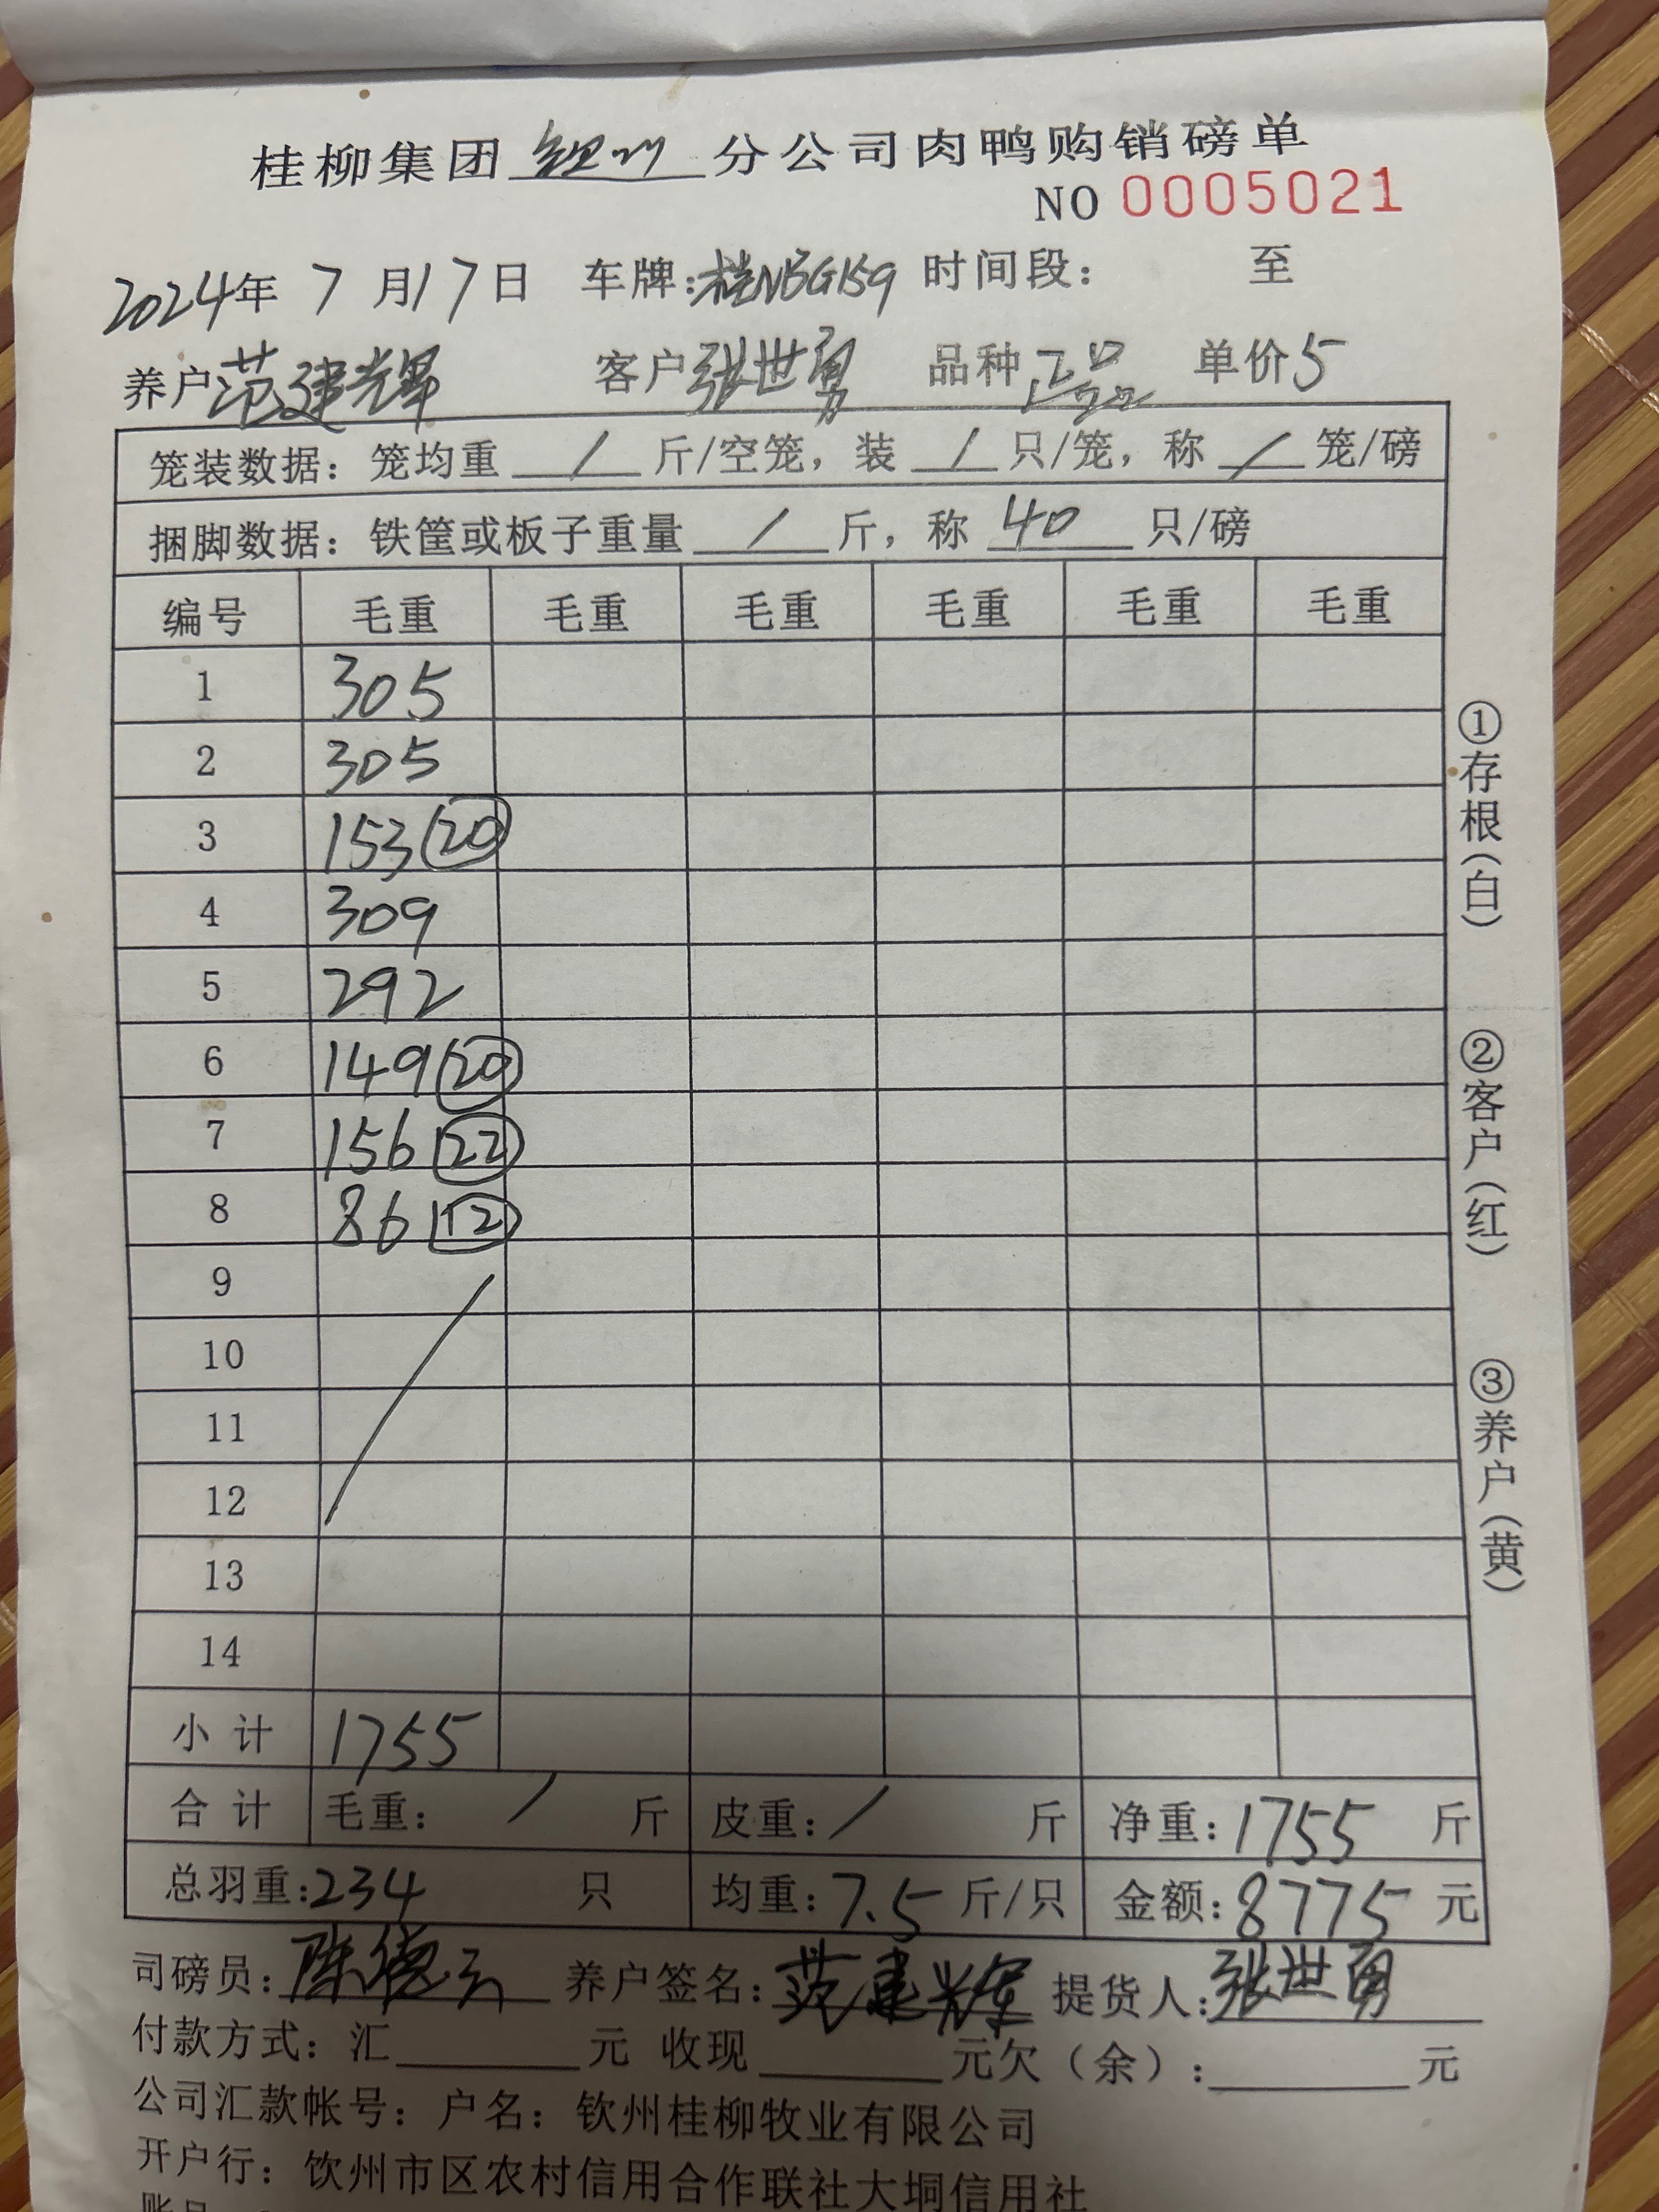 桂柳集团钦州分公司肉鸭购销磅单
NO 0005021
2024年 7 月17日 车牌:桂NBG159 时间段: 至
养户范建辉 客户张世勇 品种正品 单价5
笼装数据: 笼均重 / 斤/空笼, 装 / 只/笼, 称 / 笼/磅
捆脚数据: 铁筐或板子重量 / 斤, 称 40 只/磅
编号 毛重 毛重 毛重 毛重 毛重 毛重
1 305
2 305
3 153(20)
4 309
5 292
6 149(20)
7 156(22)
8 86(12)
9
10
11
12
13
14
小计 1755
合计 毛重: / 斤 皮重: / 斤 净重: 1755 斤
总羽重:234 只 均重: 7.5 斤/只 金额: 8775 元
司磅员: 陈德 养户签名: 范建辉 提货人: 张世勇
付款方式: 汇 元 收现 元欠(余): 元
公司汇款帐号: 户名: 钦州桂柳牧业有限公司
开户行: 钦州市区农村信用合作联社大垌信用社
①存根(白)
②客户(红)
③养户(黄)